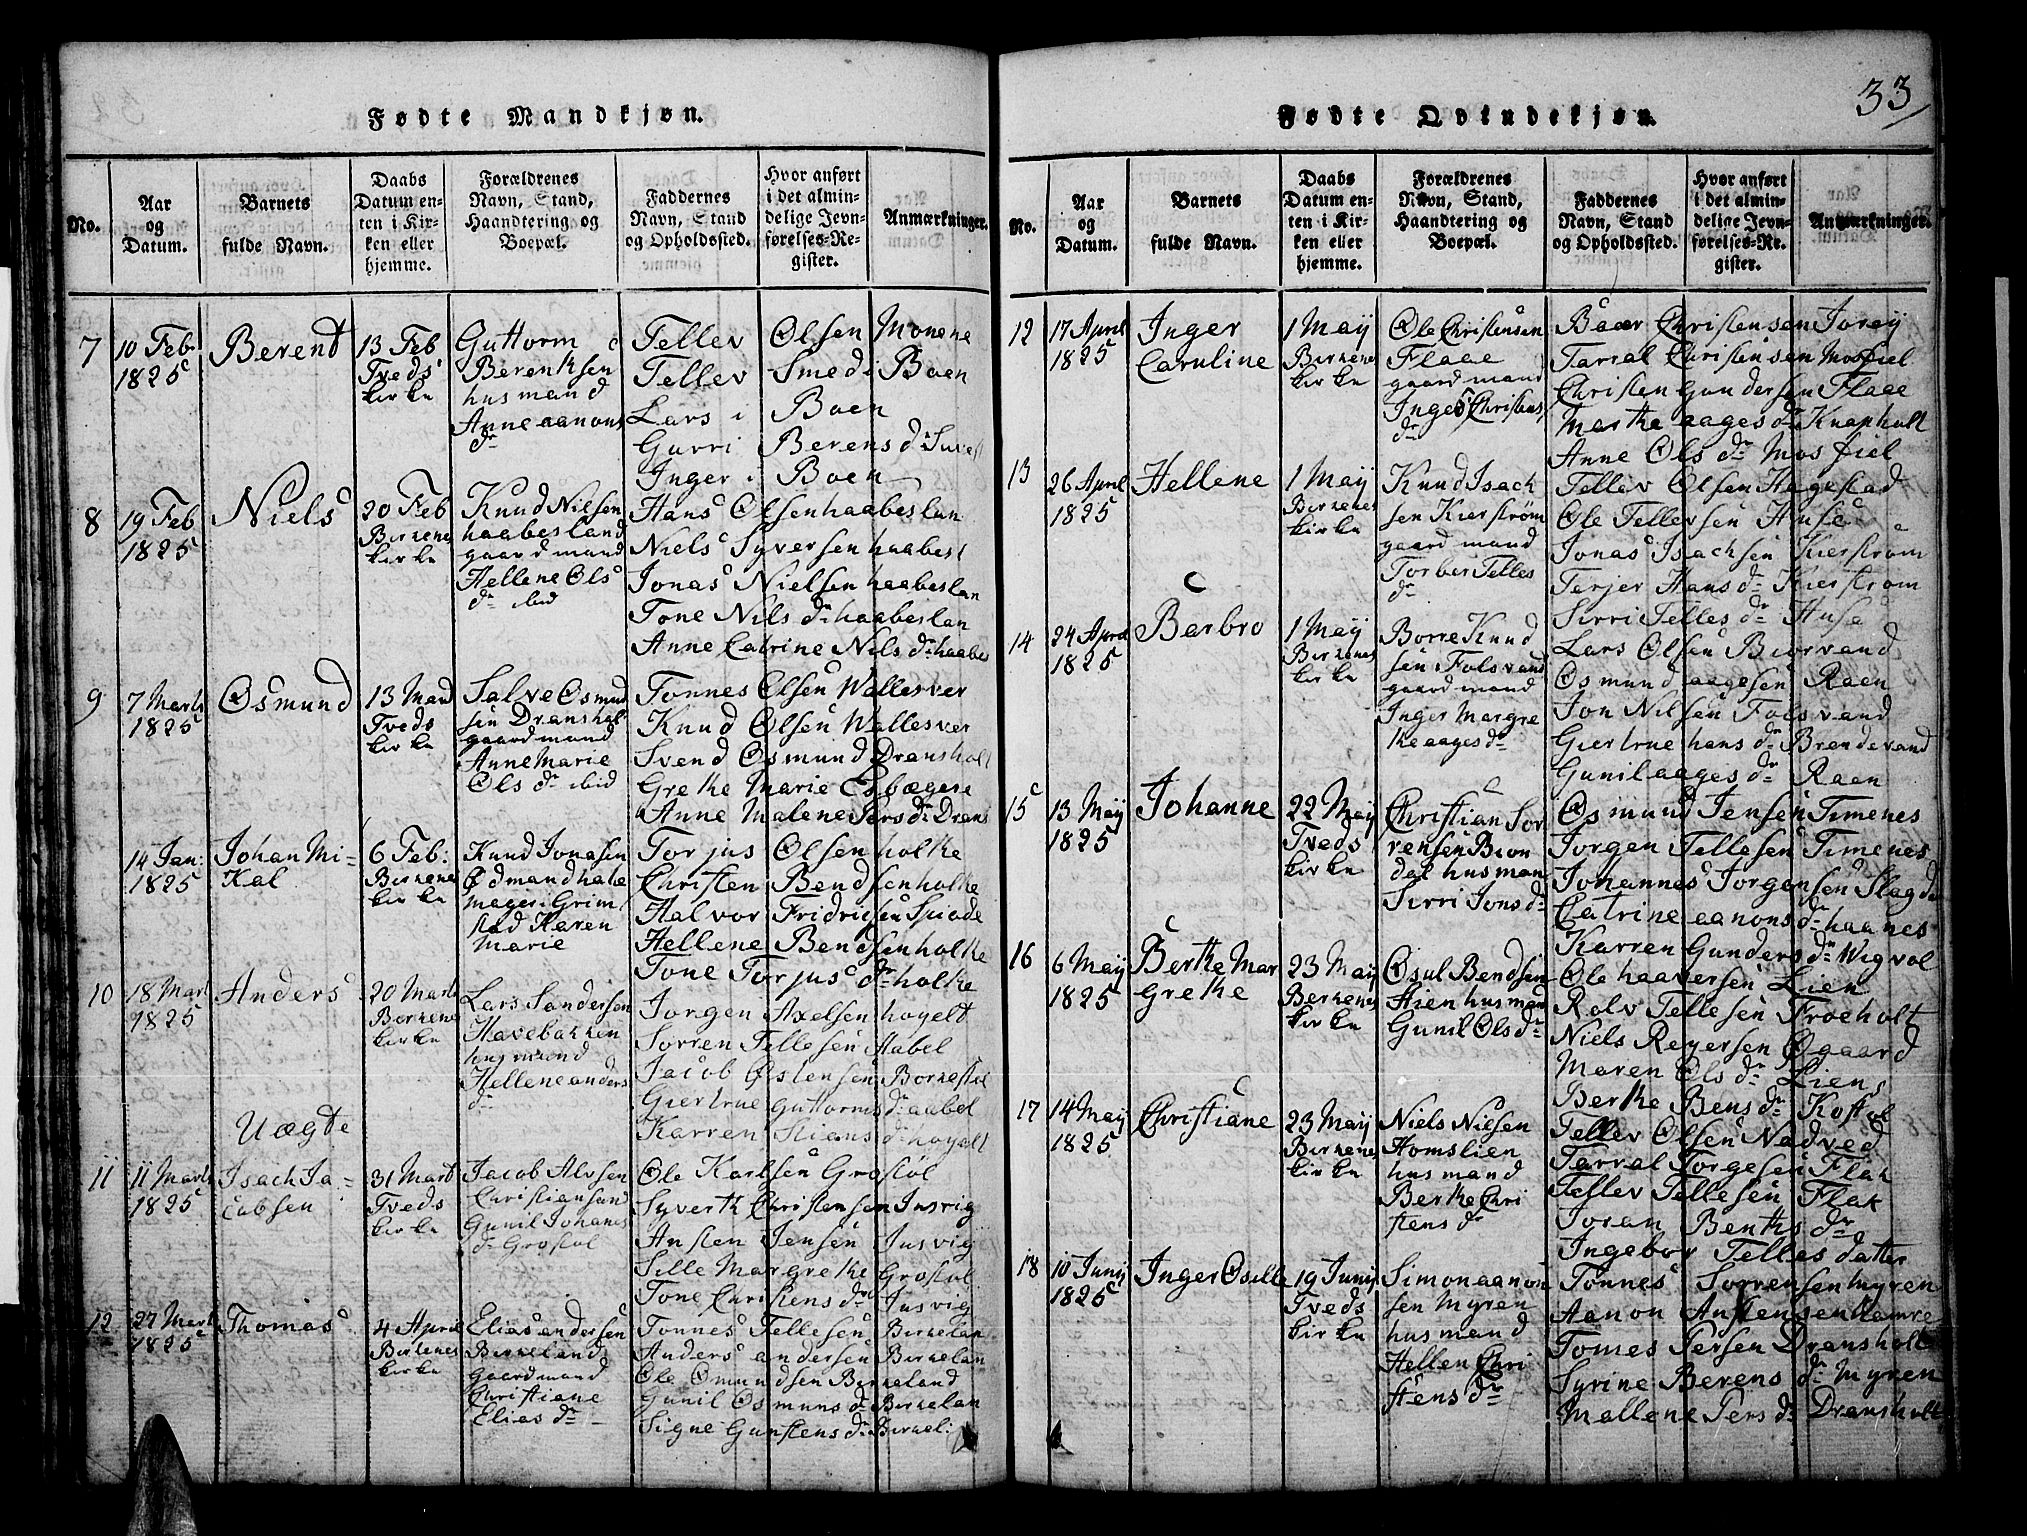 33
Fødte Mandkjøn.
No.
Aar og Datum.
Barnets fulde Navn.
Daabs Datum enten i Kirken eller hjemme.
Forældrenes Navn, Stand, Haandtering og Boepæl.
Faddernes Navn, Stand og Opholdssted.
Hvor anført i det almindelige Jevnførelses-Register.
Anmærkninger.
7
10 Feb
1825
Berent
13 Feb
Tveds
kirke
Guttorm
Berentsen
husmand
Anne aanons
dr
Tellev Olsen Monene
Tellev Smed i Boen
Lars i Boen
Gurri Berens dr
Inger i Boen
8
19 Feb
1825
Niels
20 Feb
Birkenes
kirke
Knud Nilsen
haabesland
gaardmand
Hellene Ols
dr ibid
Hans Olsen haabeslan
Niels Syversen haabesl
Jonas Nielsen haabeslan
Tone Nils dr haabeslan
Anne Catrine Nils dr haabes
9
7 Marts
1825
Osmund
13 Mart
Tveds
kirke
Salve Osmund
sen Dranshol
gaardmand
Anne Marie
Ols dr ibid
Tonnes Olsen Wallesver
Knud Olsen Wallesver
Svend Osmund Dransholt
Grethe Marie
Anne Malene Pers dr Drans
14 Jan:
1825
Johan Mi-
kal
6 Feb:
Birkenes
kirke
Knud Jonasen
mager i Grim
stad Karen
Marie
Torjus Olsen holte
Christen Bendsen holte
Halvor Fridrigsen
Hellene Bendsen holte
Tone Torjus dr holte
10
18 Mart
1825
Anders
20 Mart
Berkenes
kirke
Lars Sandersen
Havebakken
husmand
Hellene anders
dr
Jorgen Axelsen hoyelt
Sorren Tellesen Aabel
Jacob Ostensen
Giertrue Guttorms dr aabel
Karren Stians dr hoyelt
Uægte
11
11 Marts
1825
Isach Ja-
cobsen
31 Mart
Tveds
kirke
Jacob
Christiansand
Gunil Johanes
dr Grostol
Ole Karlsen Grostol
Syverth Christensen Jusvig
Ansten Jensen Jusvig
Sille Margrethe Grostol
Tone Christens dr Jusvig
12
27 Mart
1825
Thomas
4 April
Birkenes
kirke
Elias andersen
Birkeland
gaardmand
Christiane
Elias dr
Tonnes Tellesen Birkelan
Anders andersen Birkelan
Ole Osmundsen Birkeland
Gunil Osmuns dr Birkelan
Signe Gunstens dr Birkel:
Fødte Qvindekjøn.
No.
Aar og Datum.
Barnets fulde Navn.
Daabs Datum enten i Kirken eller hjemme.
Forældrenes Navn, Stand, Haandtering og Boepæl.
Faddernes Navn, Stand og Opholdssted.
Hvor anført i det almindelige Jevnførelses-Register.
Anmærkninger.
12
17 April
1825
Inger
Caruline
1 Maÿ
Birkenes
kirke
Ole Christensen
Flaae
gaardmand
Inger Christens
dr
Baar Christensen
Tarral Christensen Mosfiel
Christen Gundersen Flaae
Marthe aages dr Knapholt
Anne Ols dr Mosfiel
13
26 April
1825
Hellene
1 Maÿ
Birkenes
kirke
Knud Isach
sen Kierstrøm
gaardmand
Torber Telles
dr
Tellev Olsen Hegestad
Ole Tellevsen Huse
Jonas Isachsen Kierstrom
Terjer Hans dr Kierstrom
Sirri Telles dr Huse
14
24 April
1825
Barbro
1 Maÿ
Birkenes
kirke
Borre Knud
sen Folsvand
gaardmand
Inger Margre
the aages dr
Lars Olsen Biorvand
Osmund aagesen Raen
Jon Nilsen Folsvand
Giertrue hans dr Brendevand
Gunil aages dr Raen
15
13 Maÿ
1825
Johanne
22 Maÿ
Tveds
kirke
Christian Sor
rensen Bion
dal husman
Sirri Jons dr
Osmund Jensen Timenes
Jorgen Tellesen Timenes
Johannes Jorgensen
Catrine aanons dr haanes
Karren Gunders dr Wigvol
16
6 Maÿ
1825
Berthe Mar
grethe
23 Maÿ
Berkenes
kirke
Osul Bendsen
husmand
Gunil Ols dr
Ole haaversen Lien
Rolv Tellesen Froeholt
Niels Reyersen Øgaard
Maren Ols dr Liens
Berthe Bens dr
17
14 Maÿ
1825
Christiane
23 Maÿ
Birkenes
kirke
Niels Nielsen
Homslien
husmand
Berthe Chri
stens dr
Tellev Olsen Nadved
Tarral Torgesen Flak
Tellev Tellesen Flak
Joran Benths dr
Ingebor Telles datter
18
10 Junÿ
1825
Inger Osille
19 Junÿ
Tveds
kirke
Simon aanon
sen Myren
husmand
Hellen Chri
stens dr
Tønnes Sorrensen Myren
Aanon Anstensen Hamre
Tomes Persen Dransholt
Syrine Berens dr Myren
Mallene Pers dr Dransholt